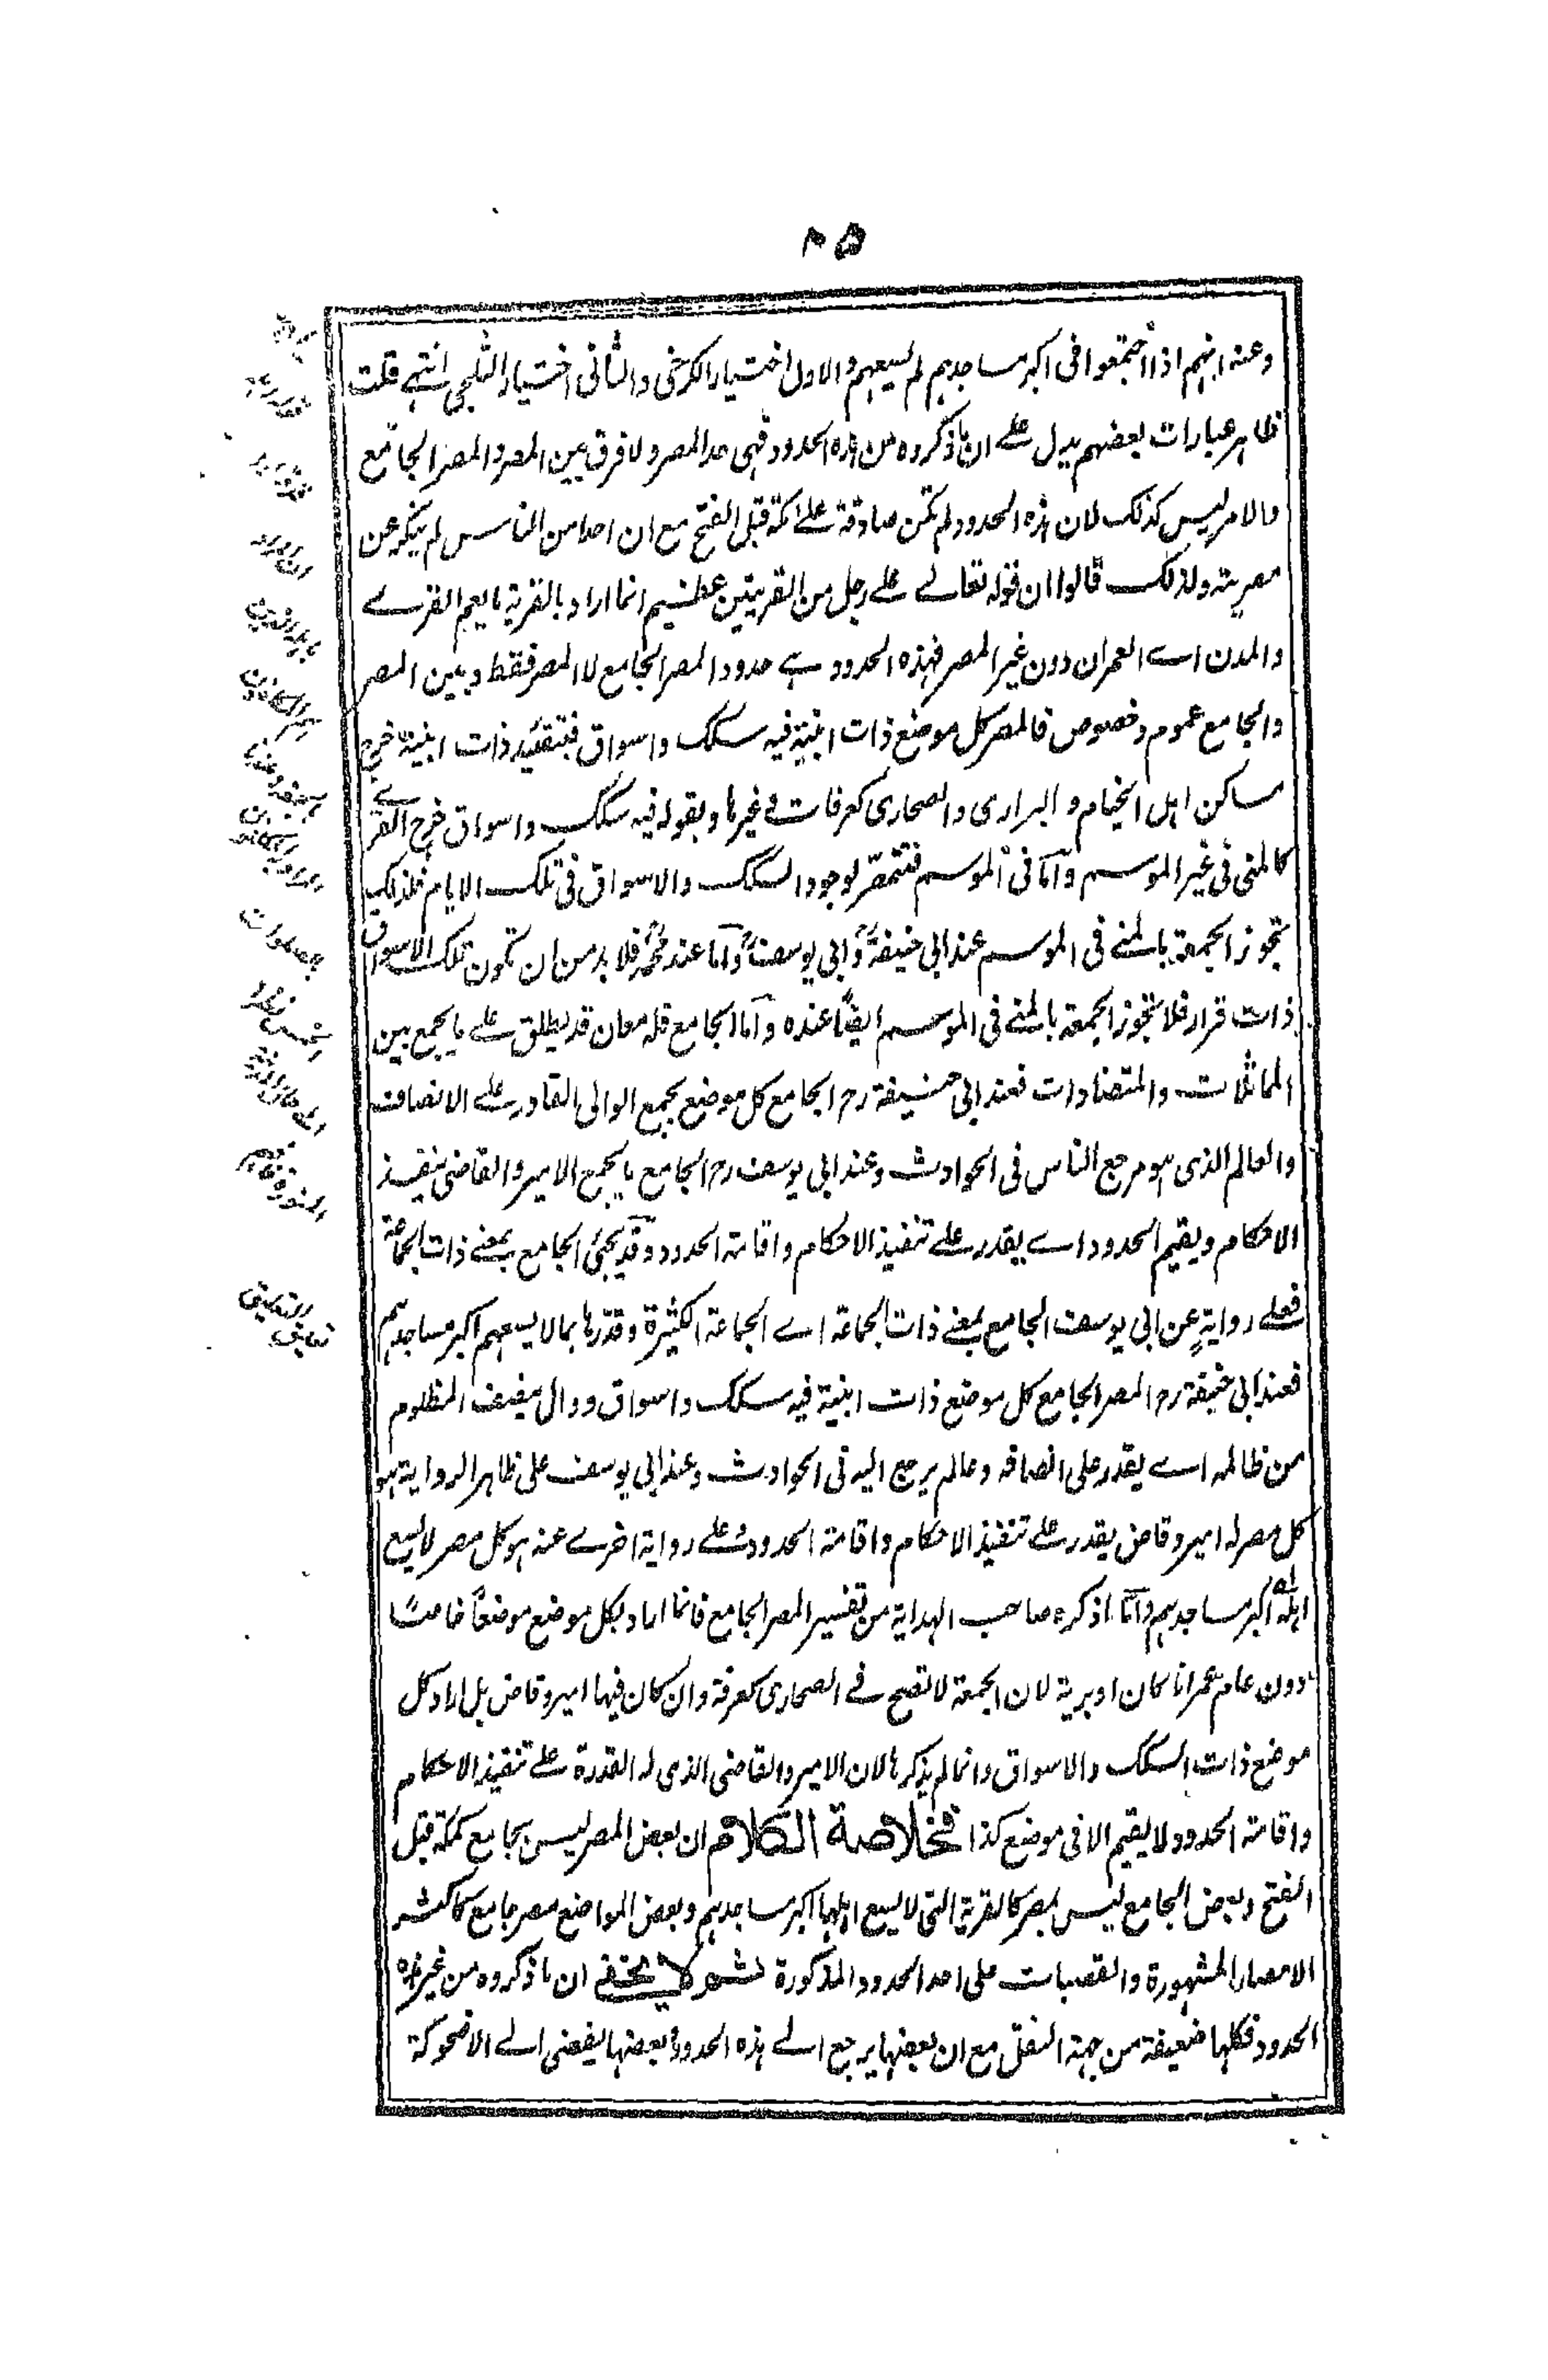 ٢٥
وعنه انهم اذا اجتمعوا فى اكبر مساجدهم لم يسعهم والاول اختيار الكرخى والثانى اختيار الثلجى انتهى قلت
ظاهر عبارات بعضهم يدل على ان ما ذكروه من هذه الحدود فهى حد المصر ولا فرق بين المصر والمصر الجامع
والامر ليس كذلك لان هذه الحدود لم تكن صادقة على مكة قبل الفتح مع ان احدا من الناس لم ينكر عن
مصريته ولذلك قالوا ان قوله تعالى على رجل من القريتين عظيم انما اراد بالقرية ما يعم القرى
والمدن اے العمران دون غير المصر فهذه الحدود هى حدود المصر الجامع لا المصر فقط وبين المصر
والجامع عموم وخصوص فالمصر كل موضع ذات ابنية فيه سكك واسواق فبتقييد ذات ابنية خرج
مساكن اهل الخيام و البرارى والصحارى كعرفات وغيرها وبقوله فيه سكك واسواق خرج القرے
كالمنى فى غير الموسم وأما فى الموسم فتتمصر لوجود السكك والاسواق فى تلك الايام فلذلك
تجوز الجمعة بالمنى فى الموسم عند ابى حنيفةؒ وابى يوسفؒ وأما عند محمدؒ فلا بد من ان تكون تلك الاسواق
ذات قرار فلا تجوز الجمعة بالمنى فى الموسم ايضًا عنده وأما الجامع فله معان قد يطلق على ما يجمع بين
المماثلات والمتضادات فعند ابى حنيفة رح الجامع كل موضع يجمع الوالى القادر على الانصاف
والعالم الذى هو مرجع الناس فى الحوادث وعند ابى يوسف رح الجامع ما يجمع الامير والقاضى ينفيذ
الاحكام ويقيم الحدود اے يقدر على تنفيذ الاحكام واقامة الحدود وقد يجئ الجامع بمعنى ذات الجماعة
فعلى روايةٍ عن ابى يوسف الجامع بمعنى ذات الجماعة اے الجماعة الكثيرة وقدّرها بما لا يسعهم اكبر مساجدهم
فعند ابى حنيفة رح المصر الجامع كل موضع ذات ابنية فيه سكك واسواق ووال ينصف المظلوم
من ظالمه اے يقدر على انصافه وعالم يرجع اليه فى الحوادث وعند ابى يوسف على ظاهر الرواية هو
كل مصر له امير وقاض يقدر على تنفيذ الاحكام واقامة الحدود وعلى رواية اخرے عنه هو كل مصر لا يسع
اهله اكبر مساجدهم وأما ما ذكره صاحب الهداية من تفسير المصر الجامع فانما اراد بكل موضع موضعًا خاصًا
دون عام عمرانا كان او برية لان الجمعة لا تصح فے الصحارى كعرفة وان كان فيها امير وقاض بل اراد كل
موضع ذات السكك والاسواق وانما لم يذكرها لان الامير والقاضى الذى له القدرة على تنفيذ الاحكام
واقامة الحدود لا يقيم الا فى موضع كذا فخلاصة الكلام ان بعض المصر ليس بجامع كمكة قبل
الفتح وبعض الجامع ليس بمصر كالقرية التى لا يسع اهلها اكبر مساجدهم وبعض المواضع مصر جامع كاكثر
الامصار المشهورة والقصبات على احد الحدود المذكورة ثم لا يخفى ان ما ذكروه من غير هذه
الحدود فكلها ضعيفة من جهة النقل مع ان بعضها يرجع الى هذه الحدود وبعضها يفضى الى الاضحوكة